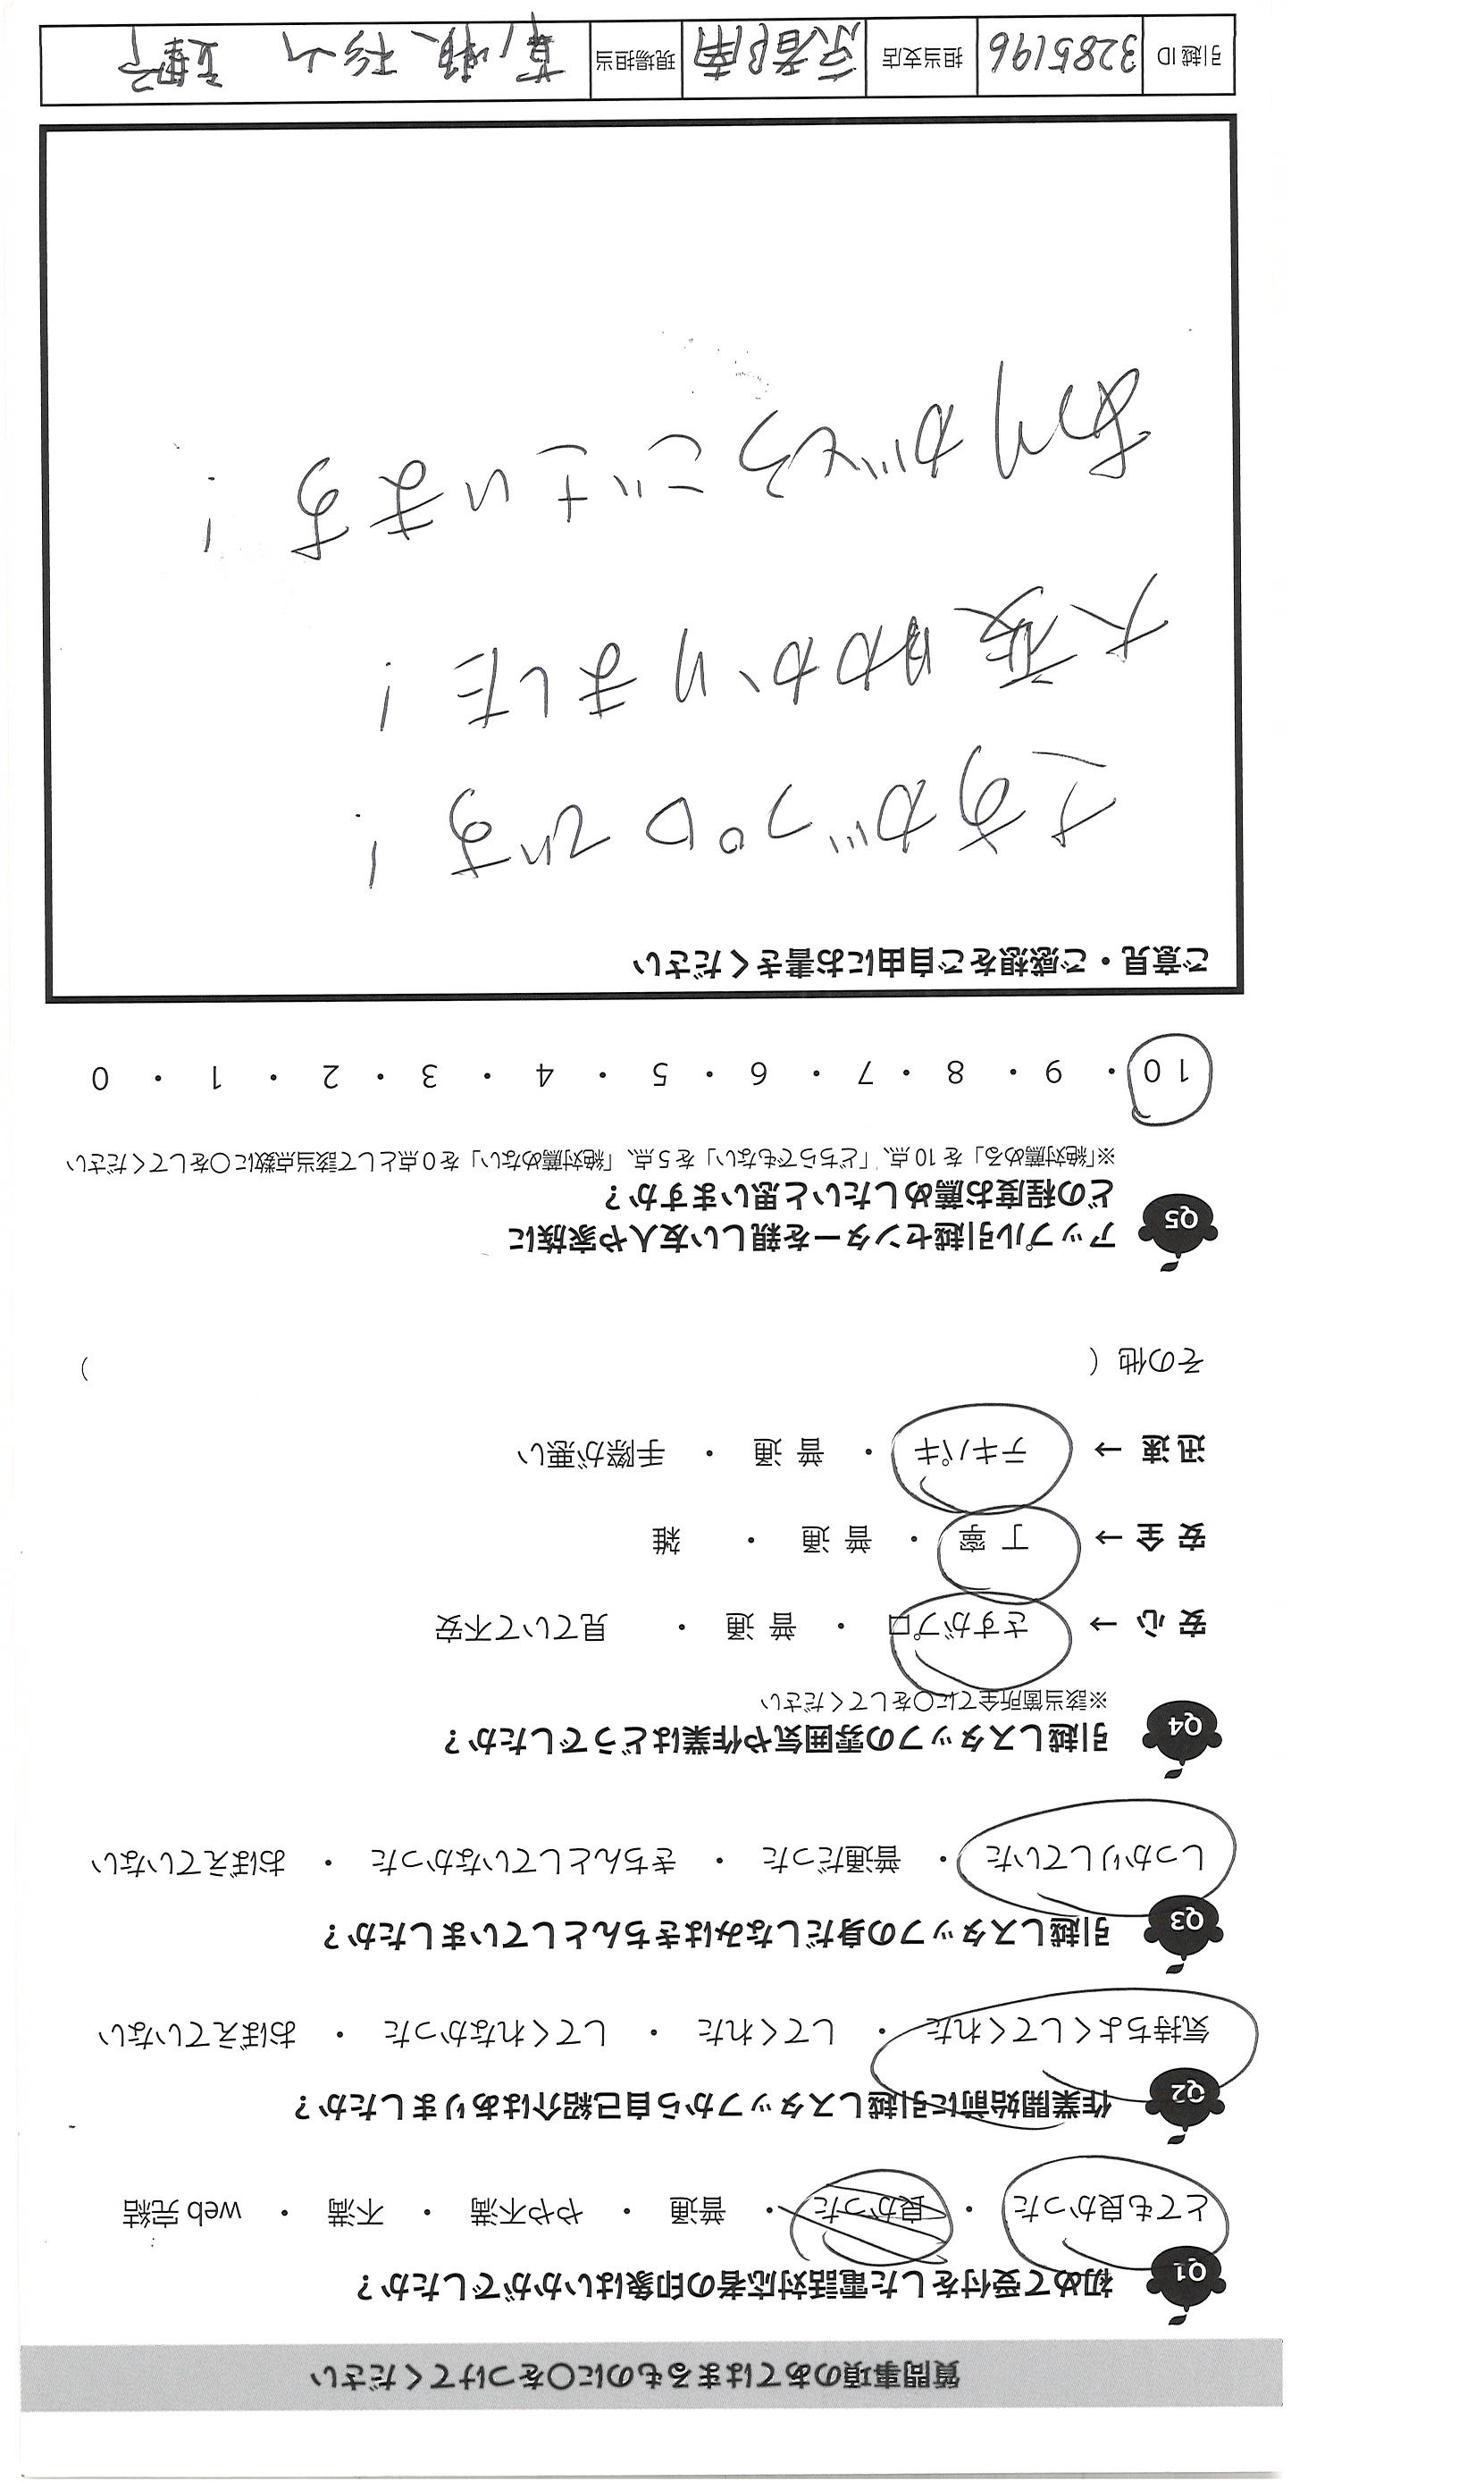 質問事項のあてはまるものに〇をつけてください
Q1 初めて受付をした電話対応者の印象はいかがでしたか?
とても良かった ・ 良かった ・ 普通 ・ やや不満 ・ 不満 ・ web 完結
Q2 作業開始前に引越しスタッフから自己紹介はありましたか?
気持ちよくしてくれた ・ してくれた ・ してくれなかった ・ おぼえていない
Q3 引越しスタッフの身だしなみはきちんとしていましたか?
しっかりしていた ・ 普通だった ・ きちんとしていなかった ・ おぼえていない
Q4 引越しスタッフの雰囲気や作業はどうでしたか?
※該当箇所全てに〇をしてください
安 心 → さすがプロ ・ 普 通 ・ 見ていて不安
安 全 → 丁 寧 ・ 普 通 ・ 雑
迅 速 → テキパキ ・ 普 通 ・ 手際が悪い
その他 ( )
Q5 アップル引越センターを親しい友人や家族に
どの程度お薦めしたいと思いますか?
※「絶対薦める」を 10 点、「どちらでもない」を 5 点、「絶対薦めない」を 0 点として該当点数に〇をしてください
10 ・ 9 ・ 8 ・ 7 ・ 6 ・ 5 ・ 4 ・ 3 ・ 2 ・ 1 ・ 0
ご意見・ご感想をご自由にお書きください
さすがプロです!
大変助かりました!
ありがとうございます!
引越 ID 3285196 担当支店 京都南 現場担当 杉山